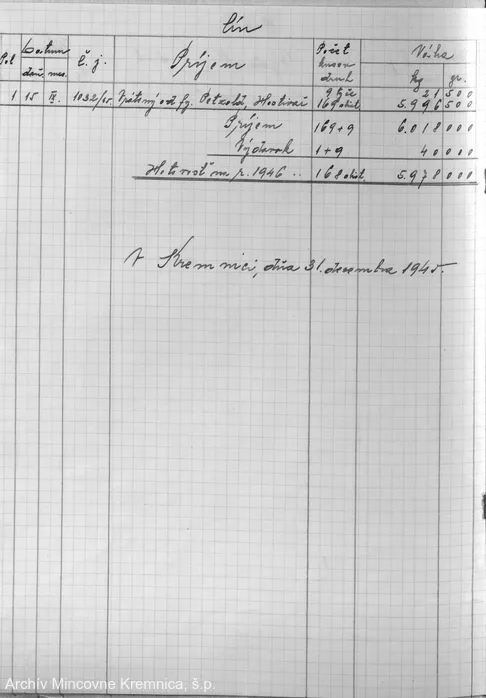 Cín
Pol Datum deň, mes. Č. j. Príjem Počet kusov druh Váha kg gr.
9 tyče 21 500
1 15 IX. 1032/45 Vrátený od fy. Petzold, Hostivař 169 obál. 5.996 500
Príjem 169+9 6.018 000
Výdavok 1+9 40 000
Hotovosť na r. 1946 .. 168 obál. 5.978 000
V Kremnici, dňa 31. decembra 1945.
Archív Mincovne Kremnica, š.p.